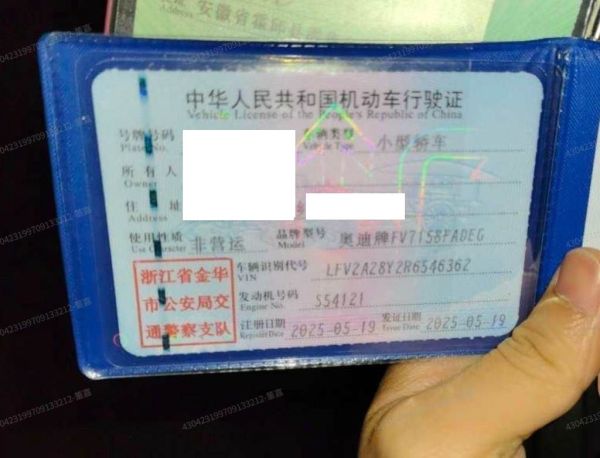 安徽省霍邱县
中华人民共和国机动车行驶证
Vehicle License of the People's Republic of China
号牌号码
Plate No.
车辆类型
Vehicle Type
小型轿车
所有人
Owner
住址
Address
使用性质
Use Character
非营运
品牌型号
Model
奥迪牌FV7158FADEG
浙江省金华
市公安局交
通警察支队
车辆识别代号
VIN
LFV2A28Y2R6546362
发动机号码
Engine No.
S54121
注册日期
Register Date
2025-05-19
发证日期
Issue Date
2025-05-19
430423199709133212-董嘉